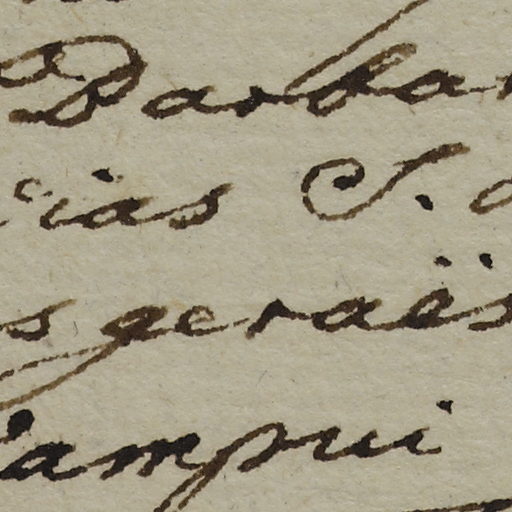 Barba
cias S.
s geraës
Campui